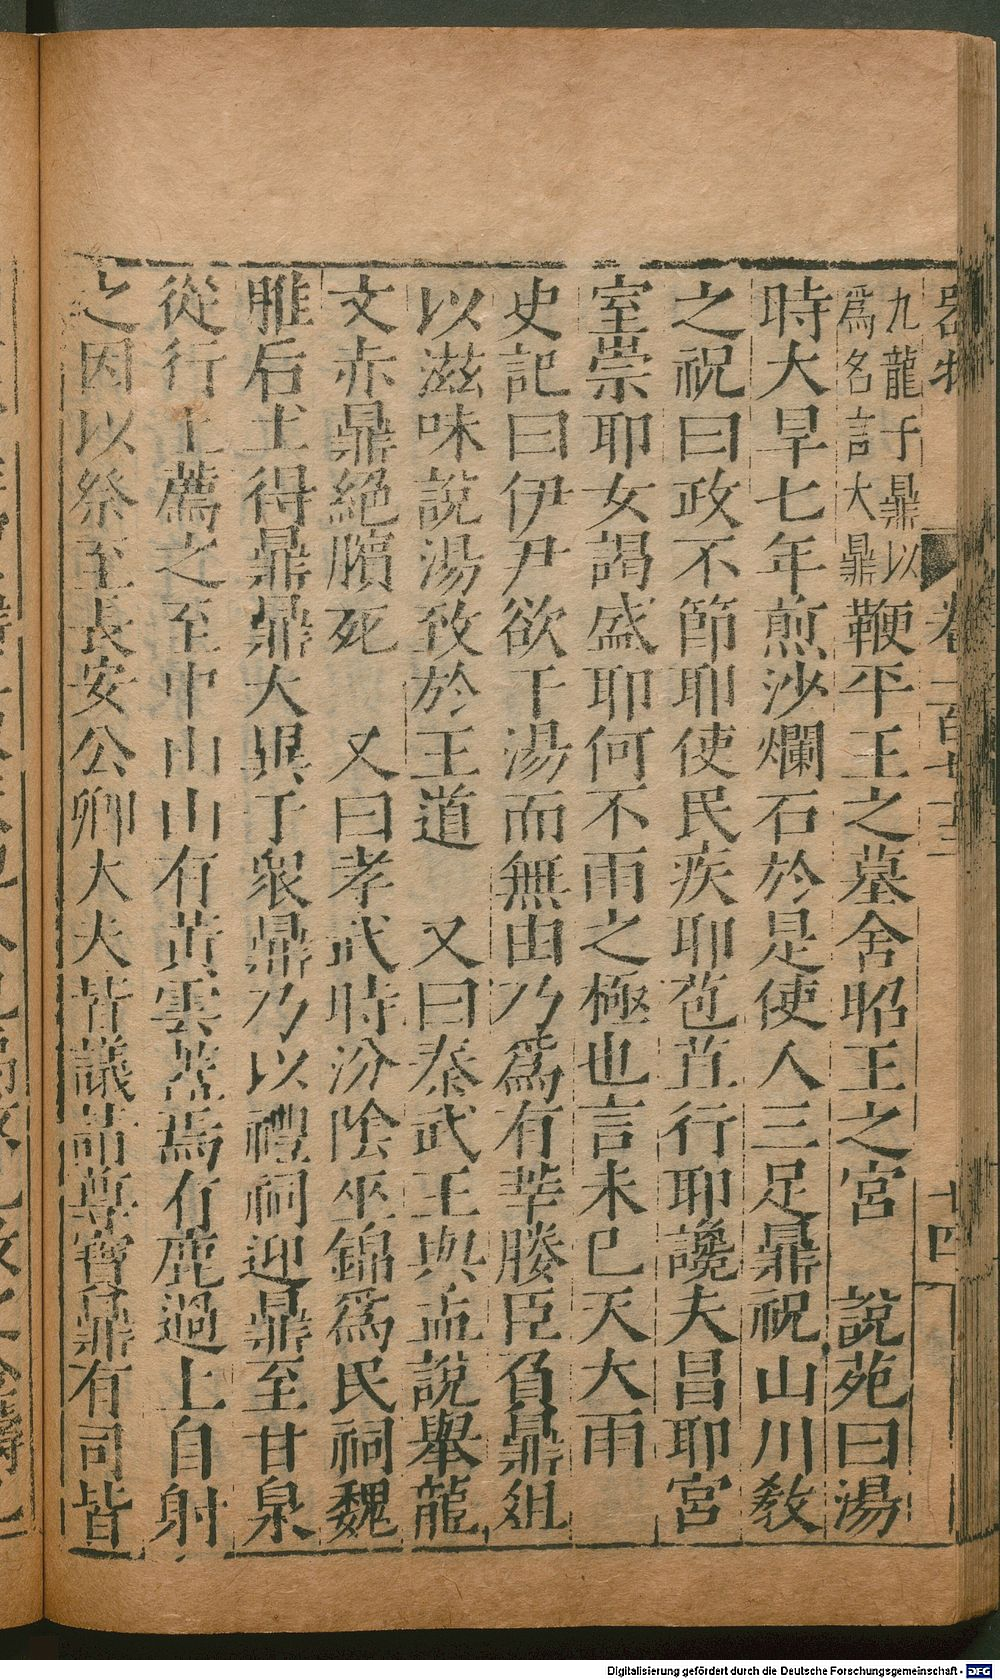 器物
卷一百七十三
十四
九龍子鼎以
爲名言大鼎
鞭平王之墓舍昭王之宮　說苑曰湯
時大旱七年煎沙爛石於是使人三足鼎祝山川敎
之祝曰政不節耶使民疾耶苞苴行耶讒夫昌耶宮
室崇耶女謁盛耶何不雨之極也言未已天大雨
史記曰伊尹欲干湯而無由乃爲有莘媵臣負鼎俎
以滋味說湯致於王道　又曰秦武王與孟說舉龍
文赤鼎絕臏死　又曰孝武時汾陰巫錦爲民祠魏
脽后土得鼎鼎大異于衆鼎乃以禮祠迎鼎至甘泉
從行上薦之至中山山有黃雲蓋焉有鹿過上自射
之因以祭至長安公卿大夫皆議請尊寶鼎有司皆
Digitalisierung gefördert durch die Deutsche Forschungsgemeinschaft - DFG